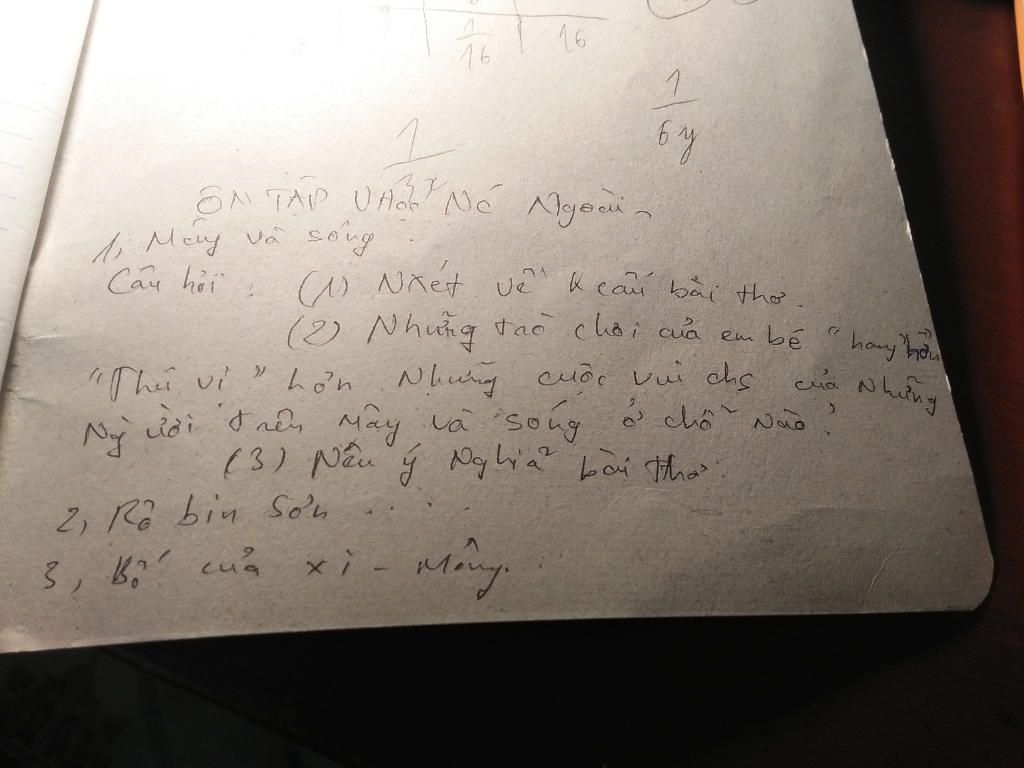 1
16
16
1
6y
1
3x
ÔN TẬP VHọc Nc Ngoài
1, Mây và sóng.
Câu hỏi: (1) NXét về k cấu bài thơ.
(2) Những trò chơi của em bé "hay" hơn
"Thú vị" hơn Những cuộc vui chs của Những
Người trên Mây và Sóng ở chỗ Nào?
(3) Nêu ý Nghĩa bài thơ
2, Rô bin Sơn . . . .
3, Bố của xi - Mông. .